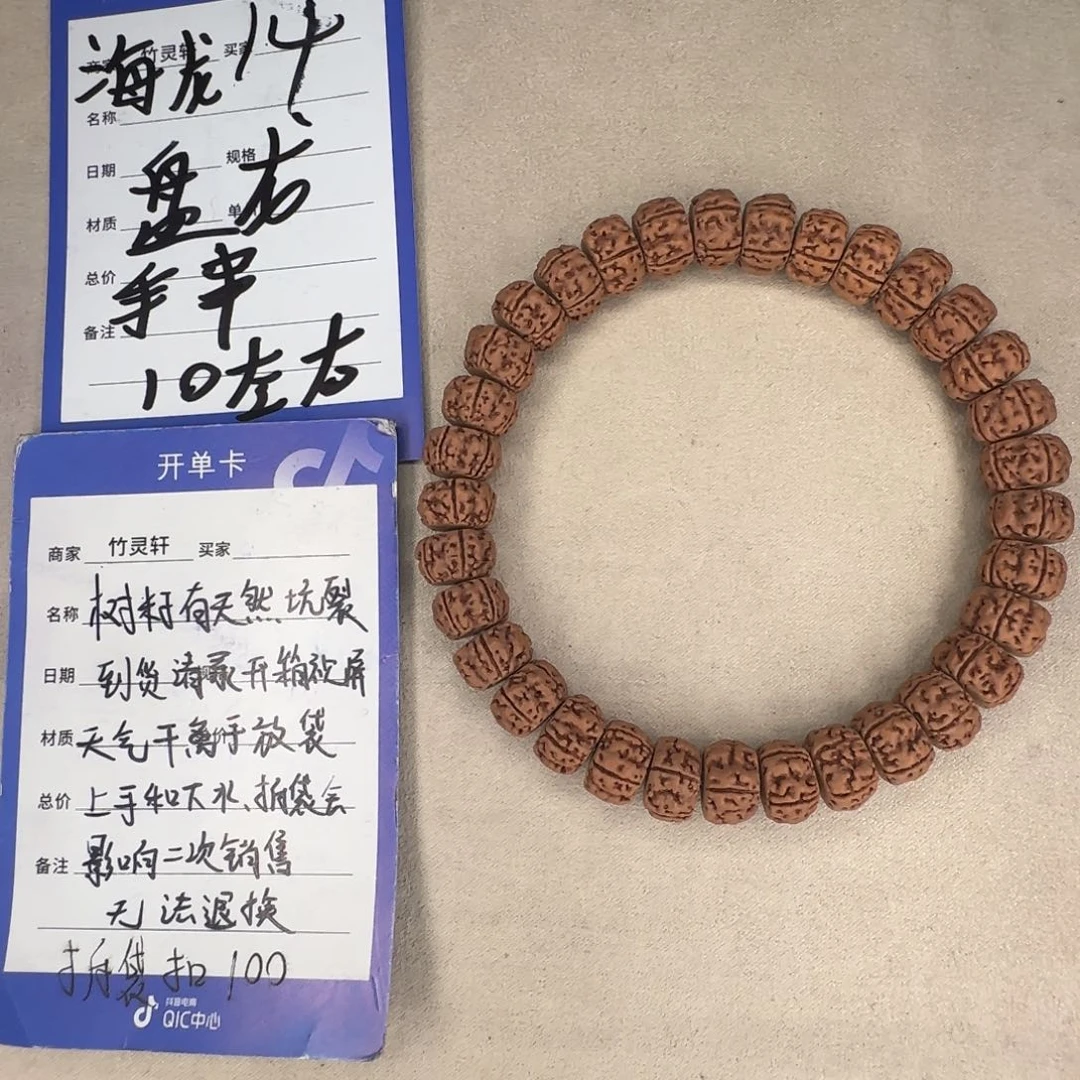 海虎14
商家 竹灵轩 买家
名称
日期 规格
盘右
材质 单
总价 手串
备注
10左右
开单卡
商家 竹灵轩 买家
名称 树籽有天然坑裂
日期 到货请录开箱视屏
材质 天气干离手放袋
总价 上手和下水、拆袋会
备注 影响二次销售
无法退换
拆袋扣100
抖音电商
QIC中心